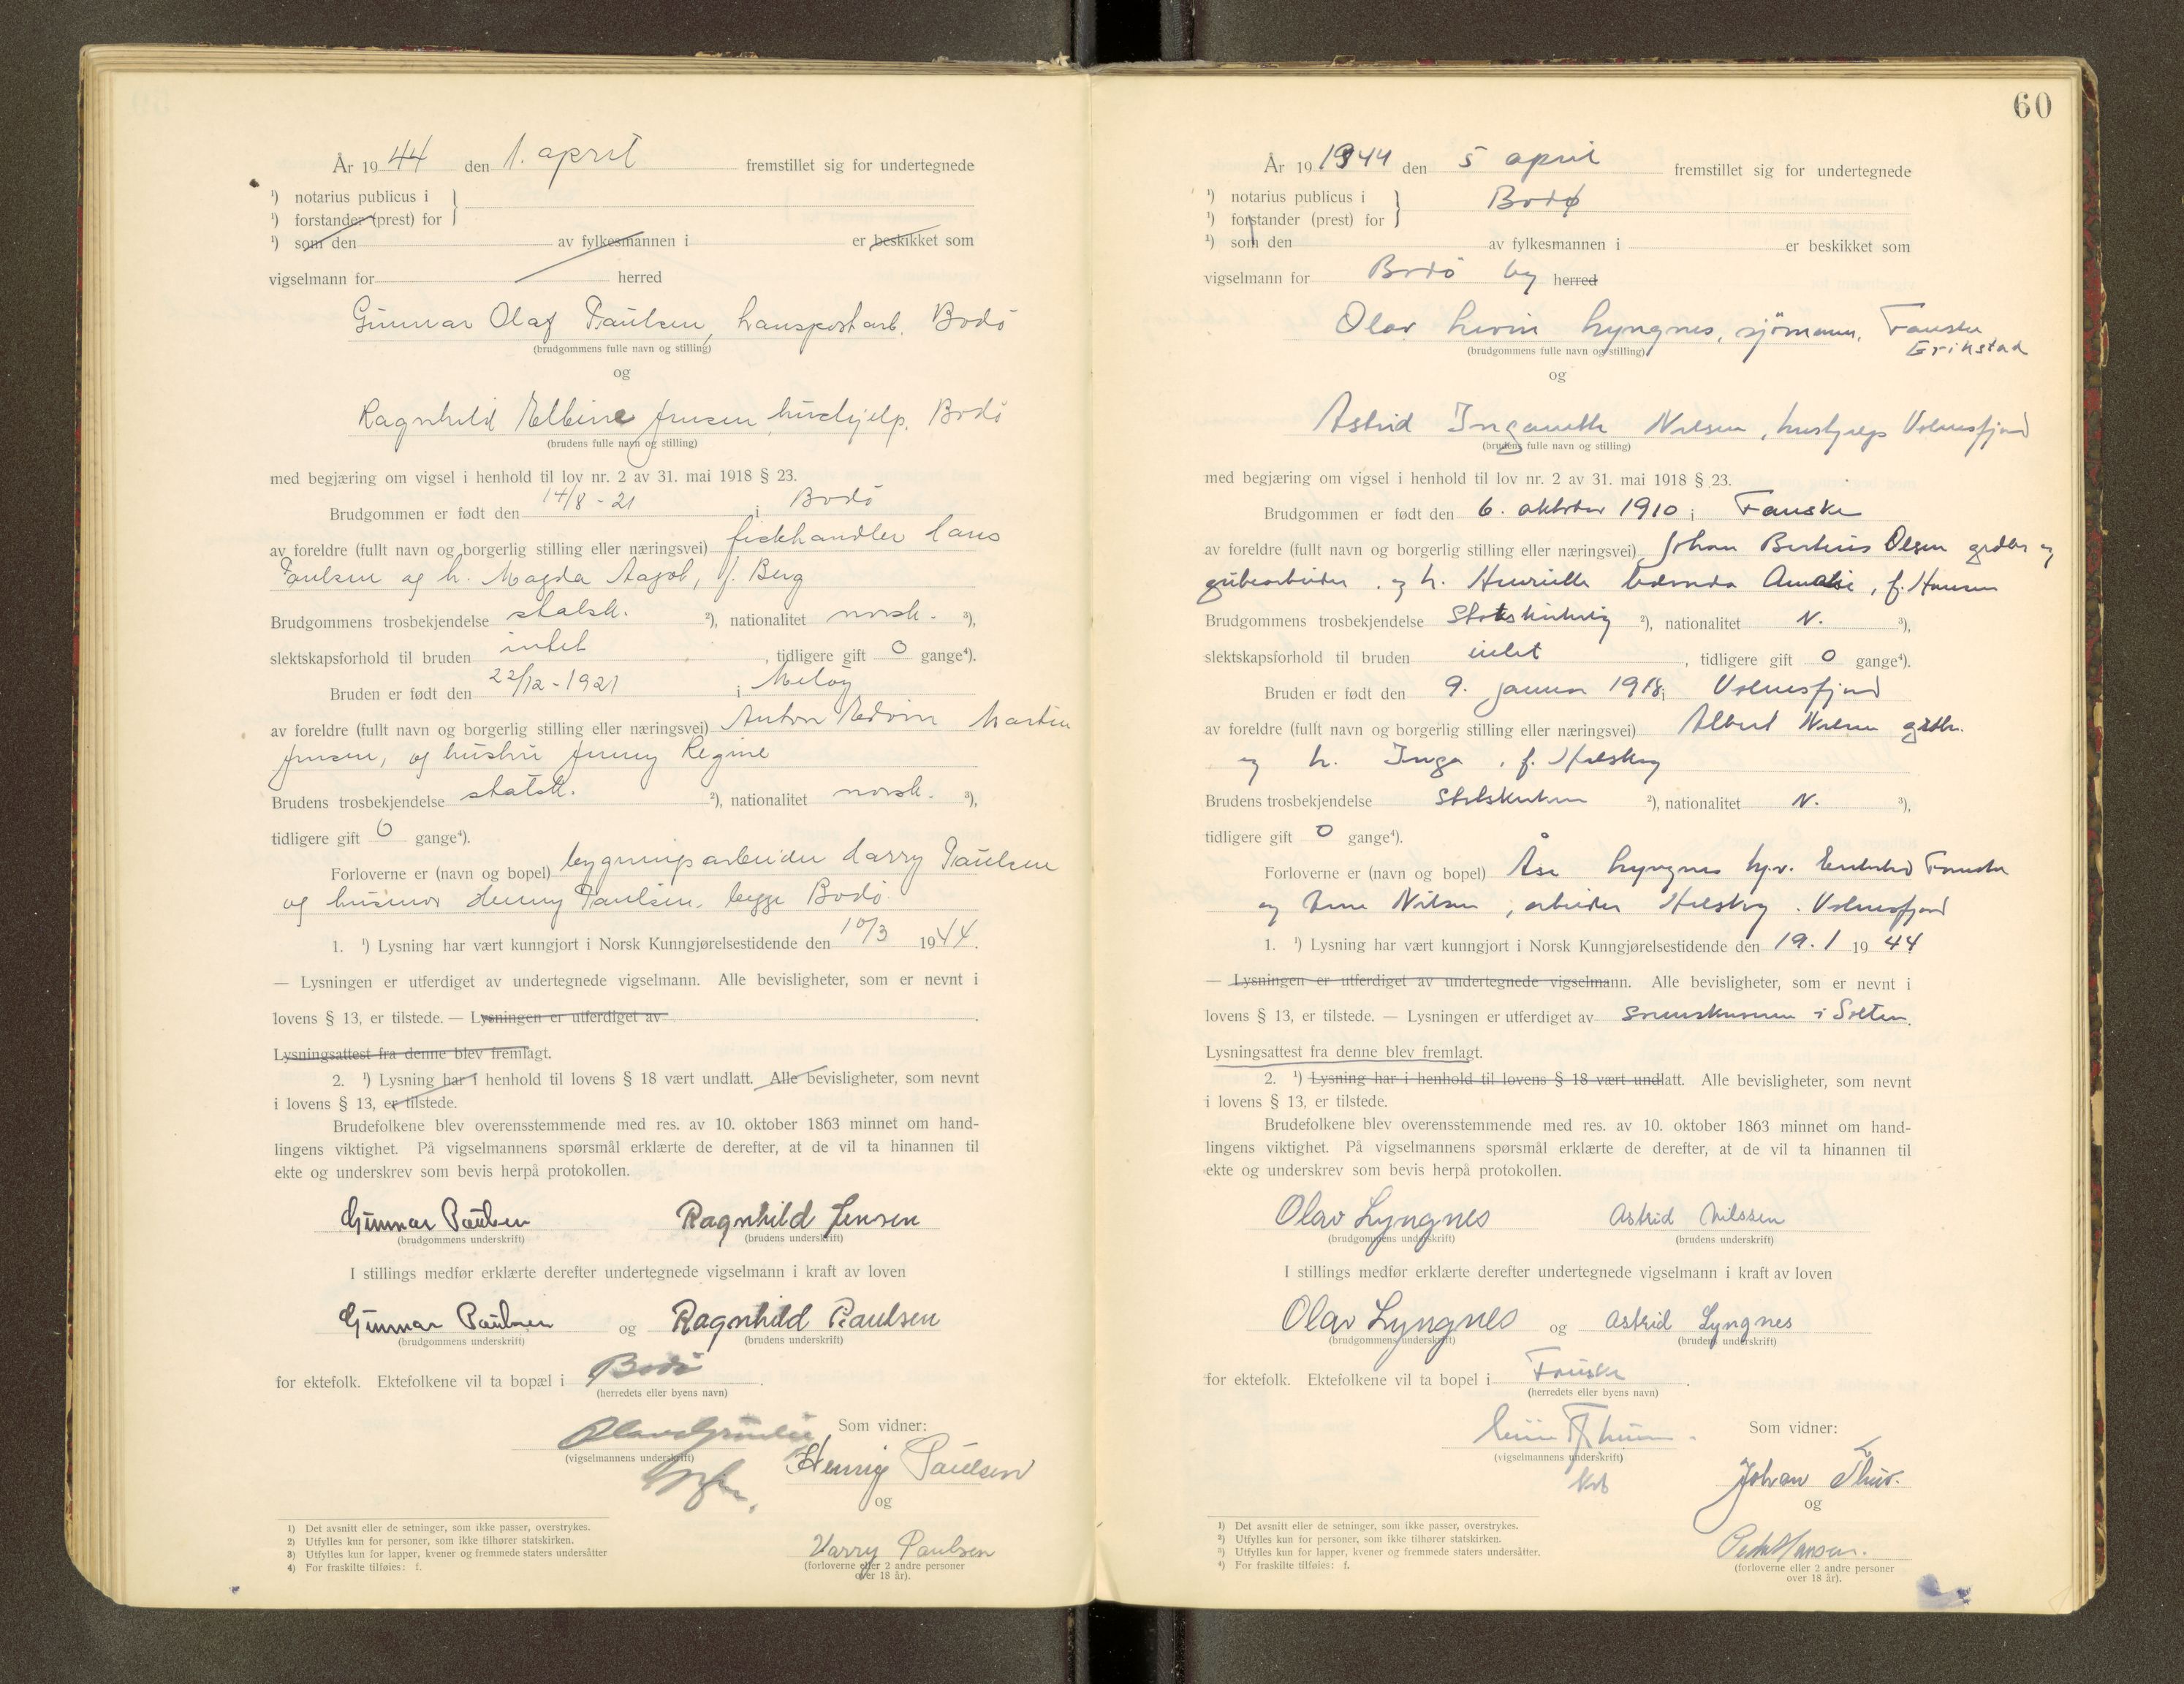 År 1944 den 1. april fremstillet sig for undertegnede
¹) notarius publicus i
¹) forstander (prest) for
¹) som den av fylkesmannen i er beskikket som
vigselmann for herred
Gunnar Olaf Paulsen, transportarb. Bodö
(brudgommens fulle navn og stilling)
og
Ragnhild Elbine Jensen, hushjelp, Bodö
(brudens fulle navn og stilling)
med begjæring om vigsel i henhold til lov nr. 2 av 31. mai 1918 § 23.
Brudgommen er født den 14/8 - 21 i Bodö
av foreldre (fullt navn og borgerlig stilling eller næringsvei) fiskhandler Hans
Paulsen og h. Magda, f. Berg
Brudgommens trosbekjendelse statsk. ²), nationalitet norsk. ³),
slektskapsforhold til bruden intet, tidligere gift 0 gange⁴).
Bruden er født den 22/12 - 1921 i Meløy
av foreldre (fullt navn og borgerlig stilling eller næringsvei) Anton Edvin Martin
Jensen, og hustru Jenny Regine
Brudens trosbekjendelse statsk. ²), nationalitet norsk. ³),
tidligere gift 0 gange⁴).
Forloverne er (navn og bopel) bygningsarbeider Harry Paulsen
og husmor Henny Paulsen, begge Bodö.
1. ¹) Lysning har vært kunngjort i Norsk Kunngjørelsestidende den 10/3 1944.
— Lysningen er utferdiget av undertegnede vigselmann. Alle bevisligheter, som er nevnt i
lovens § 13, er tilstede. — Lysningen er utferdiget av
Lysningsattest fra denne blev fremlagt.
2. ¹) Lysning har i henhold til lovens § 18 vært undlatt. Alle bevisligheter, som nevnt
i lovens § 13, er tilstede.
Brudefolkene blev overensstemmende med res. av 10. oktober 1863 minnet om hand-
lingens viktighet. På vigselmannens spørsmål erklærte de derefter, at de vil ta hinannen til
ekte og underskrev som bevis herpå protokollen.
Gunnar Paulsen Ragnhild Jensen
(brudgommens underskrift) (brudens underskrift)
I stillings medfør erklærte derefter undertegnede vigselmann i kraft av loven
Gunnar Paulsen og Ragnhild Paulsen
(brudgommens underskrift) (brudens underskrift)
for ektefolk. Ektefolkene vil ta bopæl i Bodö.
(herredets eller byens navn)
Som vidner:
(vigselmannens underskrift)
Henny Paulsen
og
Harry Paulsen
(forloverne eller 2 andre personer
over 18 år).
1) Det avsnitt eller de setninger, som ikke passer, overstrykes.
2) Utfylles kun for personer, som ikke tilhører statskirken.
3) Utfylles kun for lapper, kvener og fremmede staters undersåtter
4) For fraskilte tilføies: f.
60
År 19 1944 den 5 april fremstillet sig for undertegnede
¹) notarius publicus i Bodø
¹) forstander (prest) for
¹) som den av fylkesmannen i er beskikket som
vigselmann for Bodö by herred
Olav Lyngnes, sjömann, Fauske
Erikstad
(brudgommens fulle navn og stilling)
og
Astrid Inganette Nilsen, hushjelp Valnesfjord
(brudens fulle navn og stilling)
med begjæring om vigsel i henhold til lov nr. 2 av 31. mai 1918 § 23.
Brudgommen er født den 6. oktober 1910 i Fauske
av foreldre (fullt navn og borgerlig stilling eller næringsvei) Johan Olsen grdbr og
grubearbeider og h. Henriette Amalie, f. Hansen
Brudgommens trosbekjendelse Statskirkelig ²), nationalitet N. ³),
slektskapsforhold til bruden intet, tidligere gift 0 gange⁴).
Bruden er født den 9. januar 1918 i Valnesfjord
av foreldre (fullt navn og borgerlig stilling eller næringsvei) Albert Nilsen grdbr.
og h. Inga, f. Helskog
Brudens trosbekjendelse Statskirken ²), nationalitet N. ³),
tidligere gift 0 gange⁴).
Forloverne er (navn og bopel) Åse Lyngnes Erikstad Fauske
og Nilsen, arbeider Helskog. Valnesfjord
1. ¹) Lysning har vært kunngjort i Norsk Kunngjørelsestidende den 19. 1 1944
— Lysningen er utferdiget av undertegnede vigselmann. Alle bevisligheter, som er nevnt i
lovens § 13, er tilstede. — Lysningen er utferdiget av sorenskriveren i Salten.
Lysningsattest fra denne blev fremlagt.
2. ¹) Lysning har i henhold til lovens § 18 vært undlatt. Alle bevisligheter, som nevnt
i lovens § 13, er tilstede.
Brudefolkene blev overensstemmende med res. av 10. oktober 1863 minnet om hand-
lingens viktighet. På vigselmannens spørsmål erklærte de derefter, at de vil ta hinannen til
ekte og underskrev som bevis herpå protokollen.
Olav Lyngnes Astrid Nilssen
(brudgommens underskrift) (brudens underskrift)
I stillings medfør erklærte derefter undertegnede vigselmann i kraft av loven
Olav Lyngnes og Astrid Lyngnes
(brudgommens underskrift) (brudens underskrift)
for ektefolk. Ektefolkene vil ta bopel i Fauske.
(herredets eller byens navn)
Som vidner:
(vigselmannens underskrift)
Johan
og
Peder Hansen.
(forloverne eller 2 andre personer
over 18 år).
¹) Det avsnitt eller de setninger, som ikke passer, overstrykes.
²) Utfylles kun for personer, som ikke tilhører statskirken.
³) Utfylles kun for lapper, kvener og fremmede staters undersåtter.
⁴) For fraskilte tilføies: f.